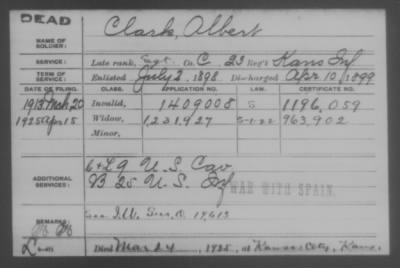 DEAD
NAME OF SOLDIER: Clark, Albert
SERVICE: Late rank, Sgt. Co. C, 23 Reg't Kans Inf
TERM OF SERVICE: Enlisted July 2, 1898 Discharged Apr 10, 1899
DATE OF FILING. CLASS. APPLICATION NO. LAW. CERTIFICATE NO.
1913 Mch 20 Invalid, 1409008 S 1196,059
1925 Apr 15 Widow, 1,231,927 5-1-22 963,902
Minor,
ADDITIONAL SERVICES: & L 9 U.S. Cav
B 25 U.S. Inf
WAR WITH SPAIN
REMARKS:
Died Mar 24, 1925, at Kansas City, Kans.